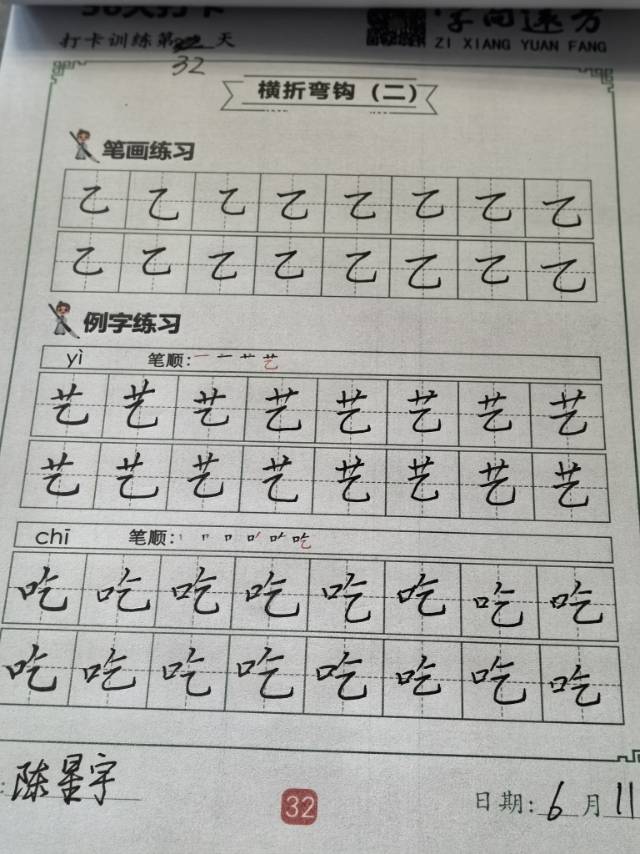 30天打卡 字向速方
打卡训练第32天 ZI XIANG YUAN FANG
32
横折弯钩（二）
笔画练习
乙乙乙乙乙乙乙乙
乙乙乙乙乙乙乙乙
例字练习
yì 笔顺： 一 十 艹 艺
艺艺艺艺艺艺艺艺
艺艺艺艺艺艺艺艺
chī 笔顺： 丨 冂 口 口丿 口𠂉 吃
吃吃吃吃吃吃吃吃
吃吃吃吃吃吃吃吃
：陈星宇 32 日期：6月11